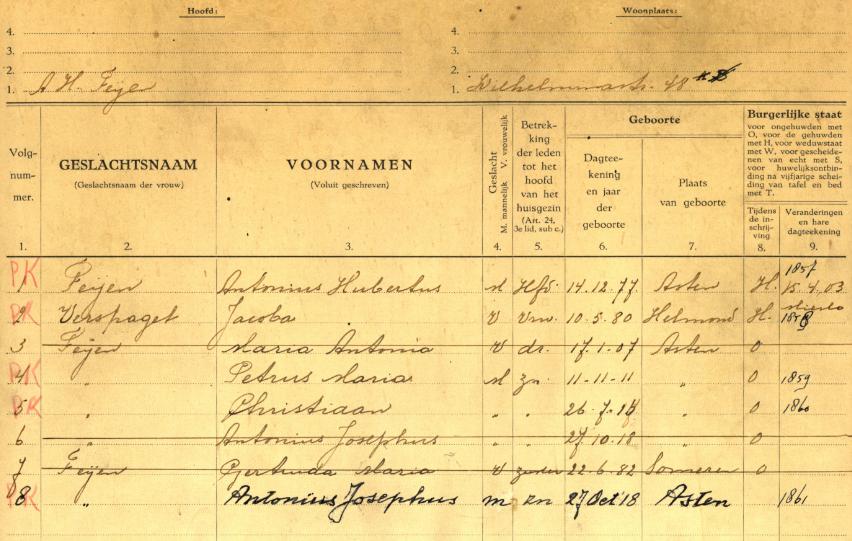 Hoofd: Woonplaats:
4. 4.
3. 3.
2. 2.
1. A H. Feijen 1. Wilhelminastr. 48
Volg-
num-
mer.
GESLACHTSNAAM
(Geslachtsnaam der vrouw)
VOORNAMEN
(Voluit geschreven)
Geslacht
M. mannelijk V. vrouwelijk
Betrek-
king
der leden
tot het
hoofd
van het
huisgezin
(Art. 24,
3e lid, sub c.)
Geboorte
Dagtee-
kening
en jaar
der
geboorte
Plaats
van geboorte
Burgerlijke staat
voor ongehuwden met
O, voor de gehuwden
met H, voor weduwstaat
met W, voor gescheide-
nen van echt met S,
voor huwelijksontbin-
ding na vijfjarige schei-
ding van tafel en bed
met T.
Tijdens
de in-
schrij-
ving
Veranderingen
en hare
dagteekening
1. 2. 3. 4. 5. 6. 7. 8. 9.
1857
PK 1 Feijen Antonius Hubertus M Hfd 14.12.77 Asten H. 15.4.03
Mierlo
PK 2 Verspaget Jacoba V Vrw. 10.5.80 Helmond H. 1858
3 Feijen Maria Antonia V dr. 17.1.07 Asten O
PK 4 " Petrus Maria M zn. 11-11-11 " O 1859
PK 5 " Christiaan " " 26.7.14 " O 1860
6 " Antonius Josephus " " 27.10.18 " O
7 Feijen Gertruda Maria V zuster 22.6.82 Someren O
PK 8 " Antonius Josephus m zn 27 Oct '18 Asten 1861